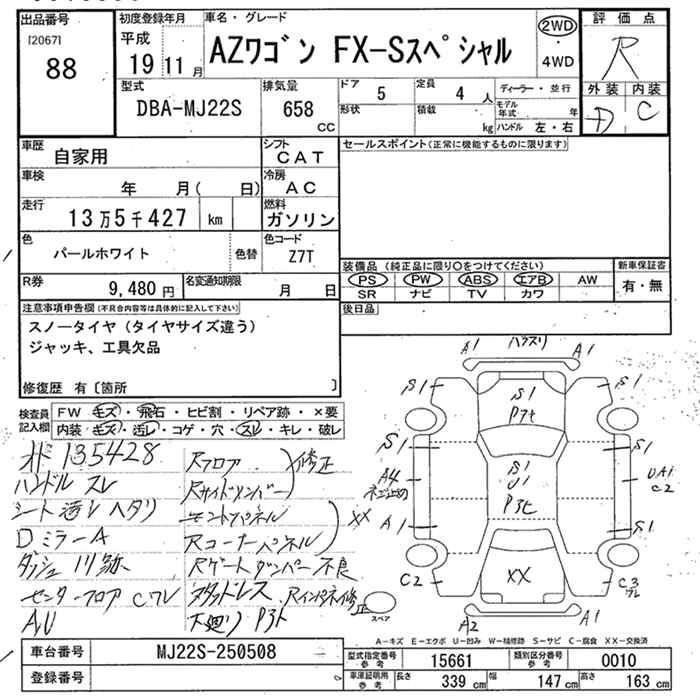 出品番号
[2067]
88
初度登録年月
平成
19 11 月
車名・グレード
AZワゴン FX-Sスペシャル
2WD
・
4WD
評価点
R
外装 内装
D C
型式
DBA-MJ22S
排気量
658
cc
ドア 5
形状
定員 4 人
積載 kg
ディーラー・並行
モデル年式 年
ハンドル 左・右
車歴
自家用
シフト
CAT
セールスポイント(正常に機能するものに限ります)
車検
年 月( 日)
冷房
AC
走行
13万5千427 km
燃料
ガソリン
色
パールホワイト
色替
色コード
Z7T
装備品 (純正品に限り○をつけてください)
新車保証書
PS PW ABS エアB AW
SR ナビ TV カワ
有・無
R券
9,480 円
名変通知期限
月 日
後日品
注意事項申告欄(不具合内容等は具体的に記入して下さい)
スノータイヤ(タイヤサイズ違う)
ジャッキ、工具欠品
修復歴 有〔箇所 〕
検査員
記入欄
FW キズ・飛石・ヒビ割・リペア跡・×要
内装 キズ・汚レ・コゲ・穴・スレ・キレ・破レ
135428
ハンドル スレ
シート 汚レ ヘタリ
DミラーA
ダッシュ
センターフロア Cワレ
A,U
Rフロア
Rサイドメンバー
修正
エンドパネル
Rコーナーパネル
Rゲートダンパー不良
スタットレス
Rインパネ修正
下廻り Pスト
A1 ハラスリ A1
S1 S1 S1
S1 S1 S1
U1
A4
ネコ止め
UA1
C2
XX A1 S1
C2 XX C3
A2 A1
スペア
A-キズ E-エクボ U-凹み W-補修跡 S-サビ C-腐食 XX-交換済
車台番号
MJ22S-250508
登録番号
型式指定番号
参考
15661
類別区分番号
参考
0010
車庫証明用
参考
長さ 339 cm
幅 147 cm
高さ 163 cm